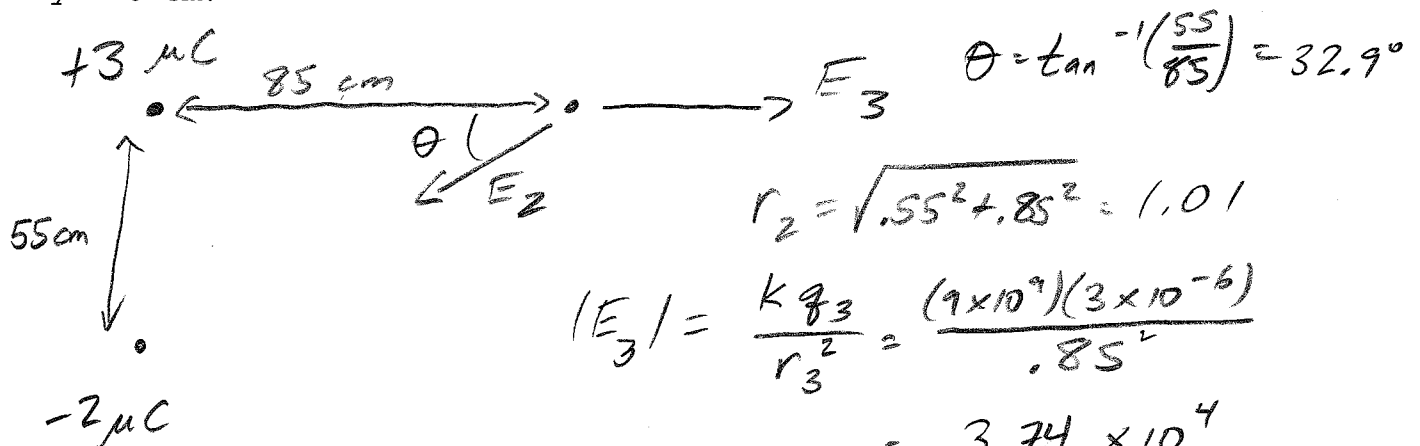 +3 μC
85 cm
E₃
θ = tan⁻¹(55/85) = 32.9°
θ
E₂
r₂ = √.55² + .85² = 1.01
55 cm
|E₃| = k q₃ / r₃² = (9×10⁹)(3×10⁻⁶) / .85²
-2 μC
= 3.74 × 10⁴